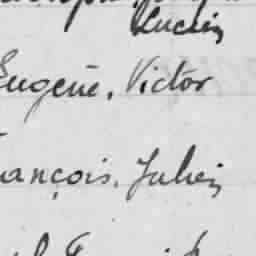 Lucien
Eugène, Victor
ançois, Julien